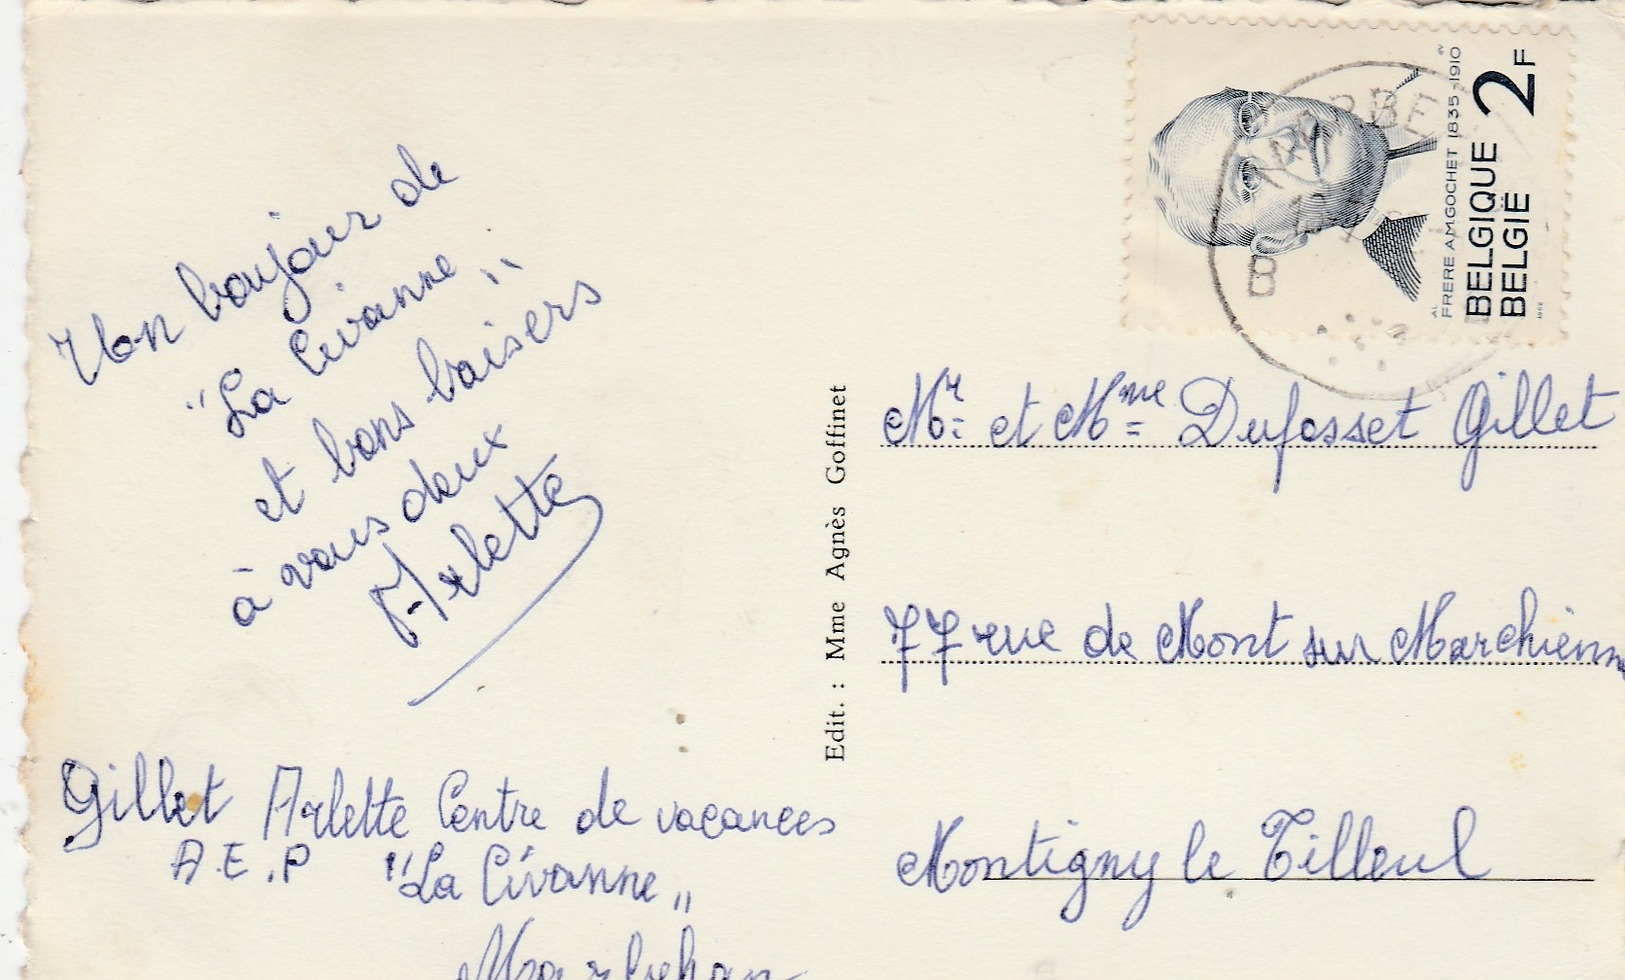 Un bonjour de
"La Civanne"
et bons baisers
à vous deux
Arlette
Gillet Arlette Centre de vacances
A.E.P "La Civanne"
Marbehan
Edit. : Mme Agnès Goffinet
FRERE A.M.GOCHET 1835-1910
BELGIQUE 2F
BELGIË
Mr et Mme Dufosset Gillet
77 rue de Mont sur Marchienn
Montigny le Tilleul